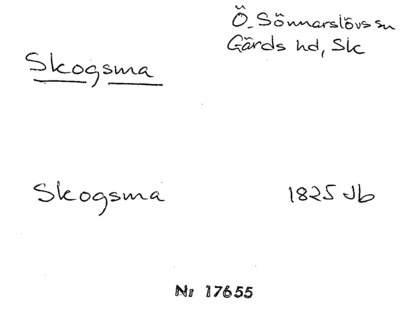 Ö. Sönnarslövs sn
Gärds hd, Sk
Skogsma
Skogsma 1825 Jb
Nr 17655